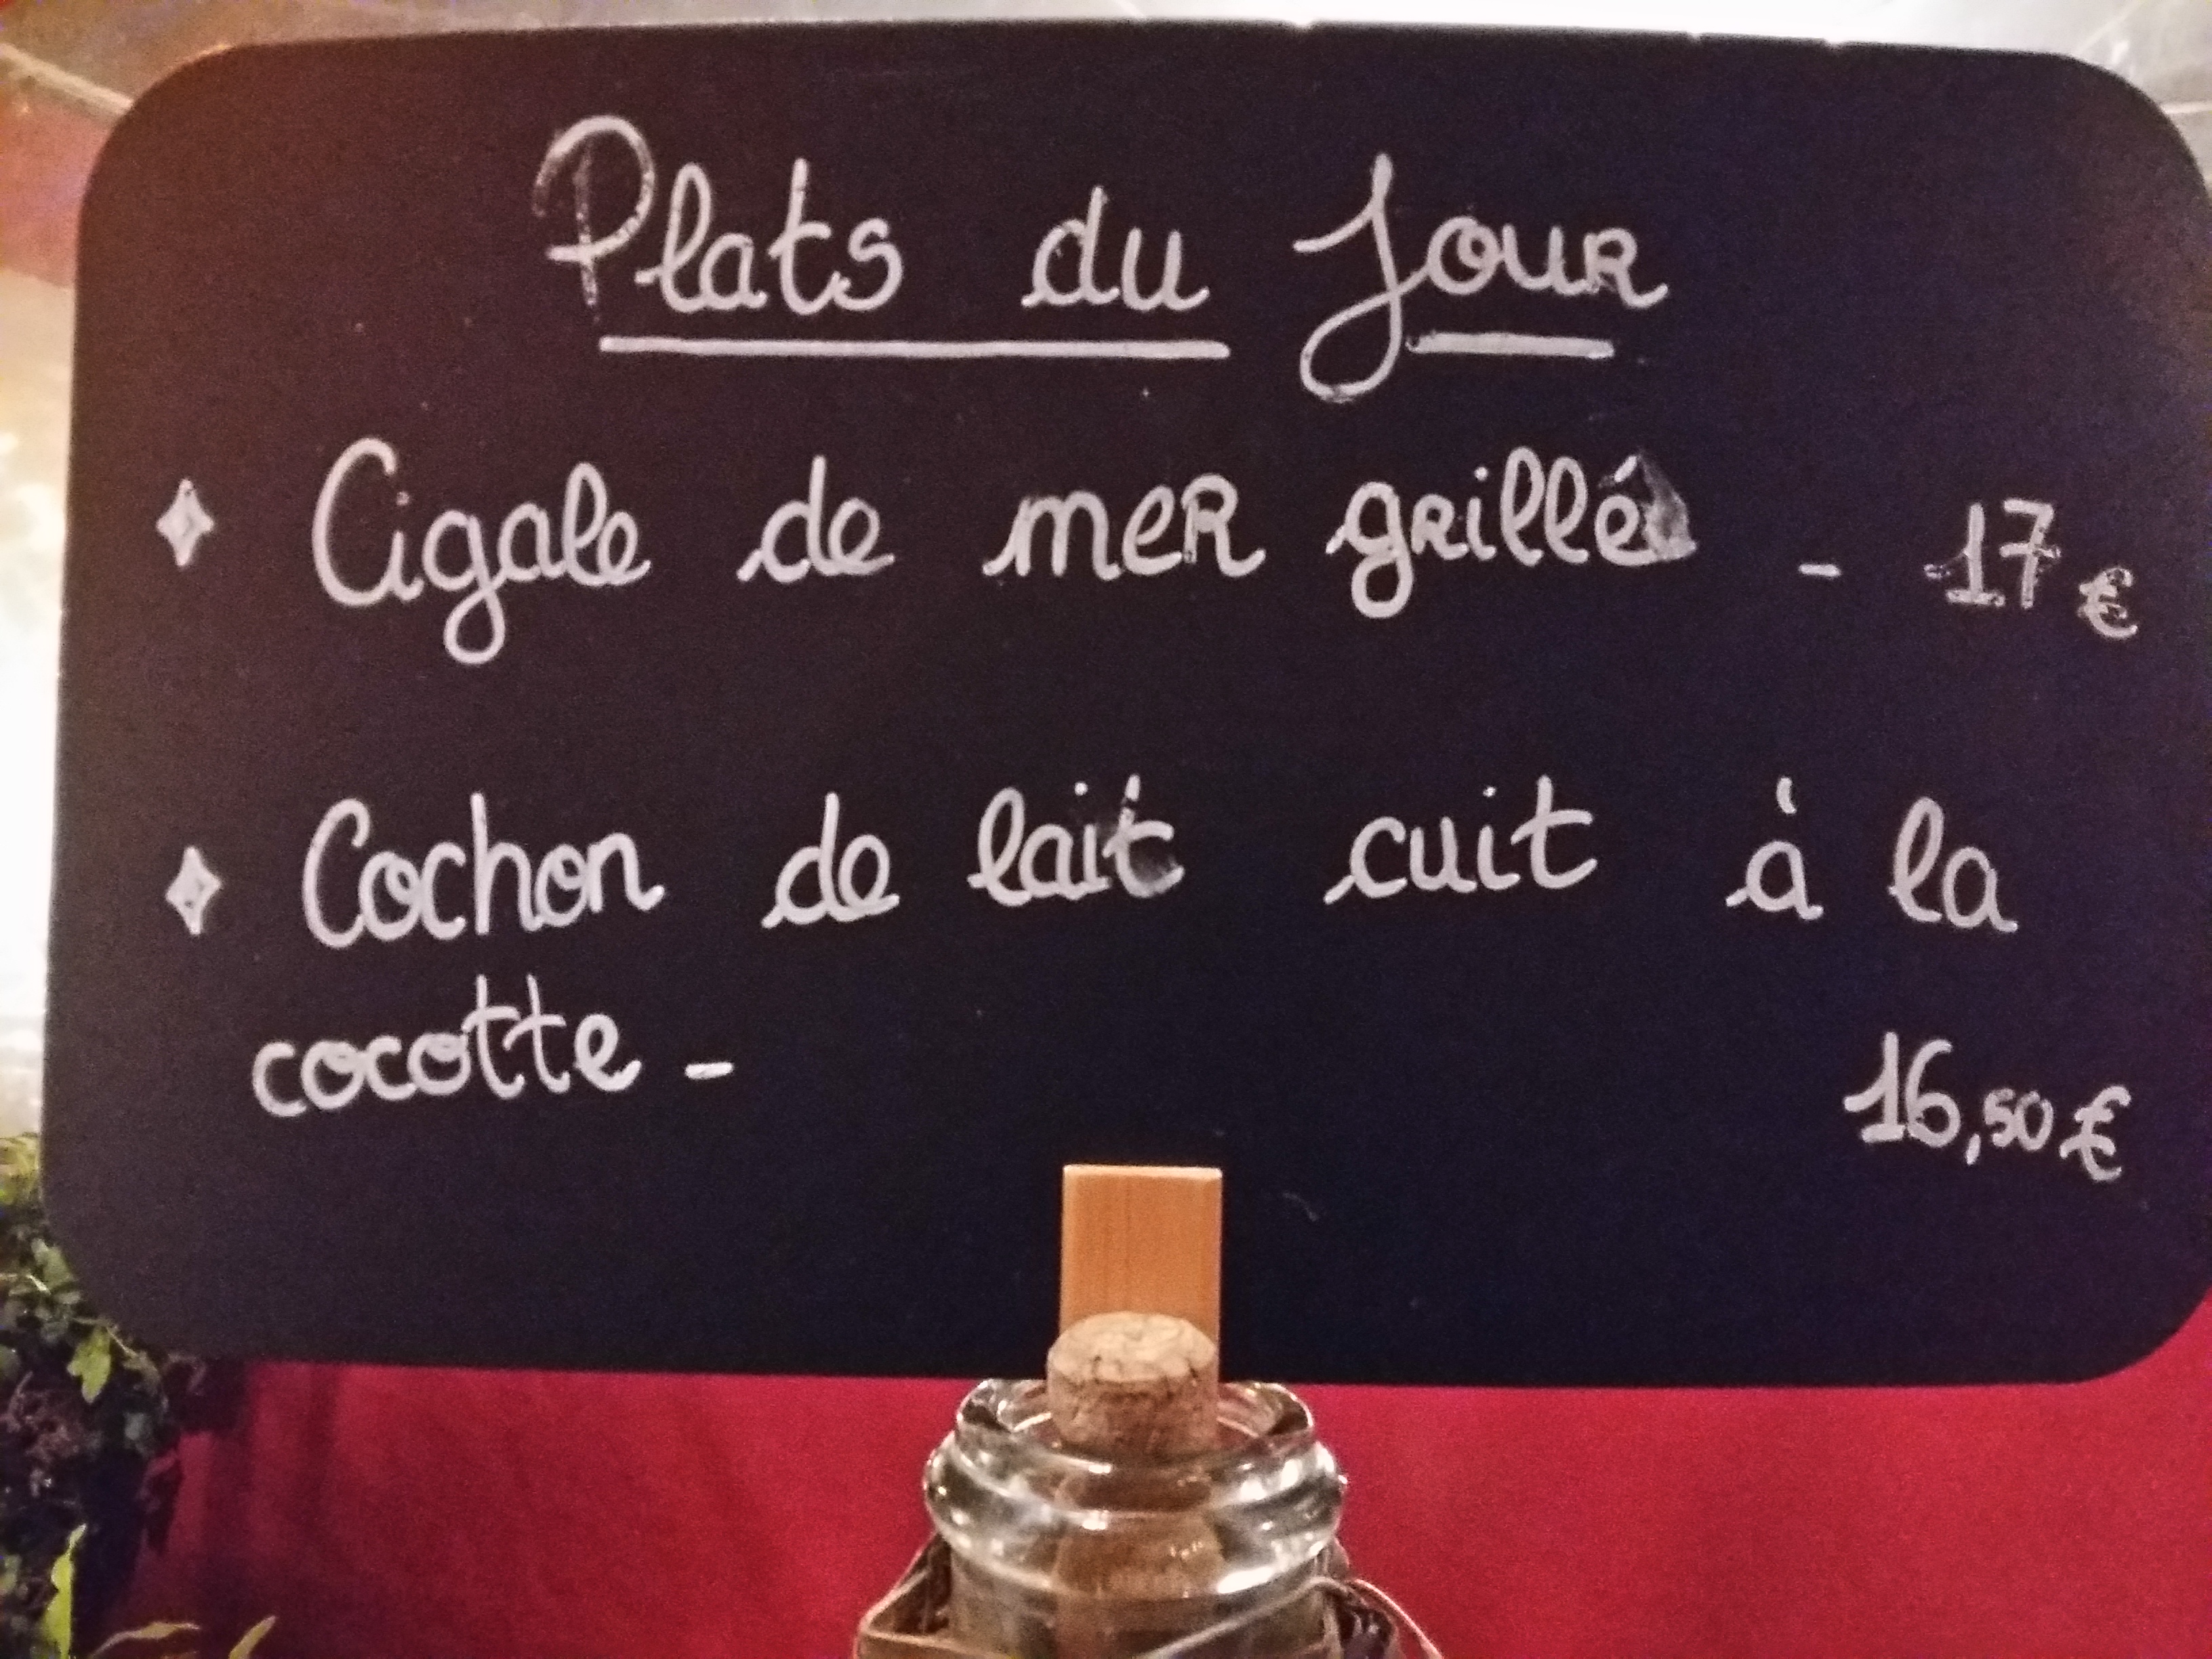 Plats du Jour
Cigale de mer grillé - 17€
Cochon de lait cuit à la
cocotte - 16,50€